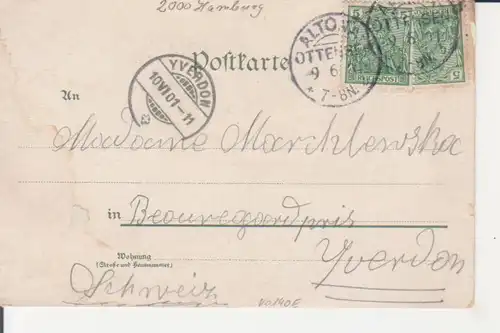 2000 Hamburg
Postkarte
ALTONA
OTTENSEN
9 6
* 7-8N.
YVERDON
10 VI 01 - 11
5
5
An
Madame Marchlewska
in Beauregard pris
Yverdon
Wohnung
(Straße und Hausnummer)
Schweiz
VO190E